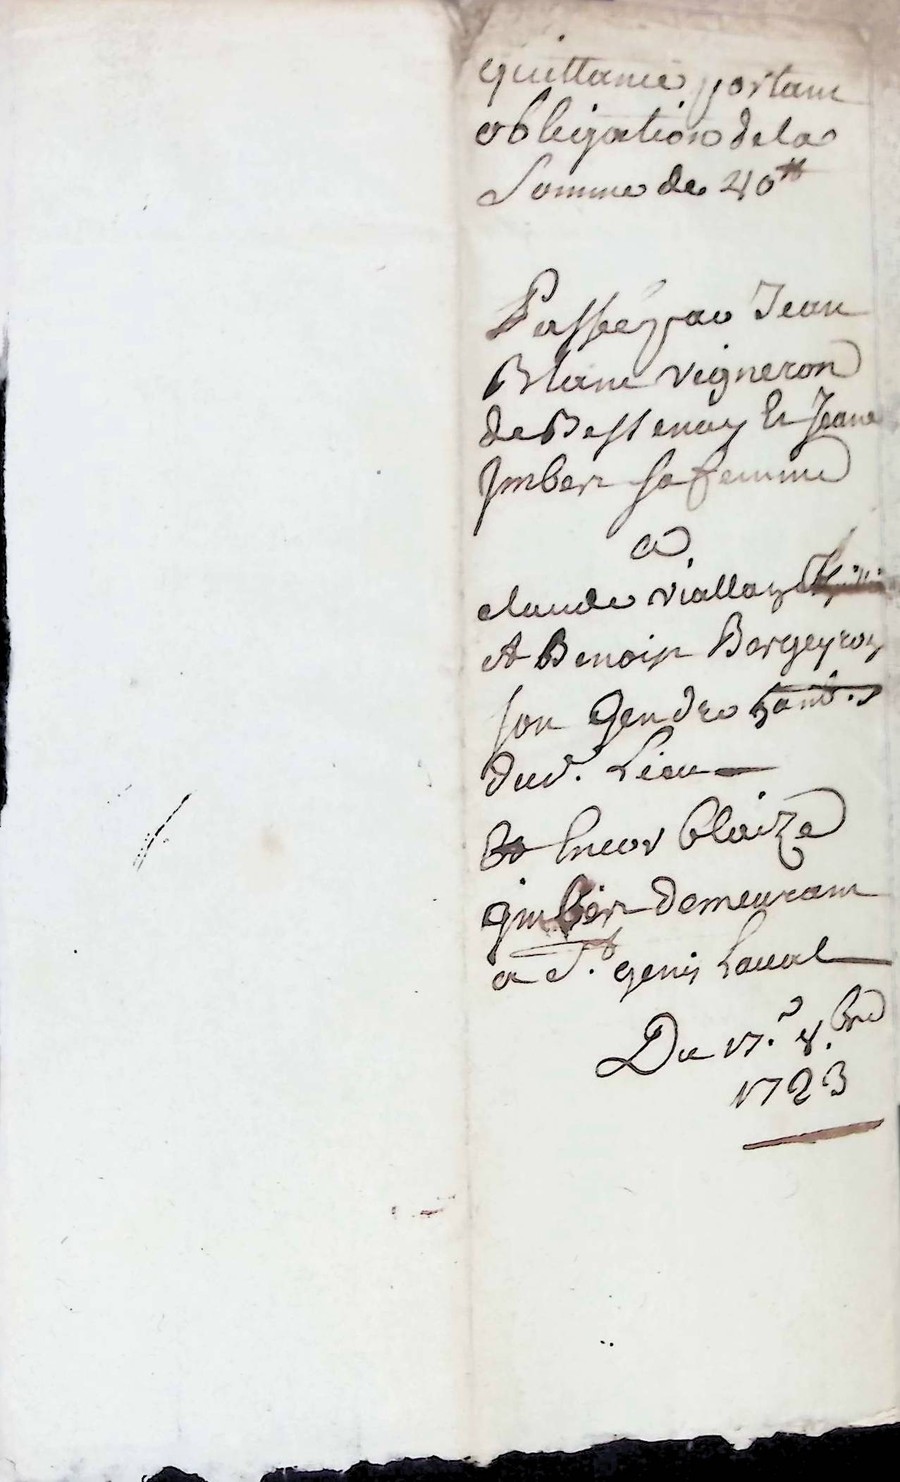 quittance portant
obligation de la
Somme de 40 ₶
Passée par Jean
Blanc vigneron
de Bessenay et Jeane
Imbert sa femme
a
claude viallay
et Benoist Bergeyron
son Gendre
dud. Lieu
et Encor blaize
imbert demeurant
a St. genis Laval
Du 17.e 8.bre
1723